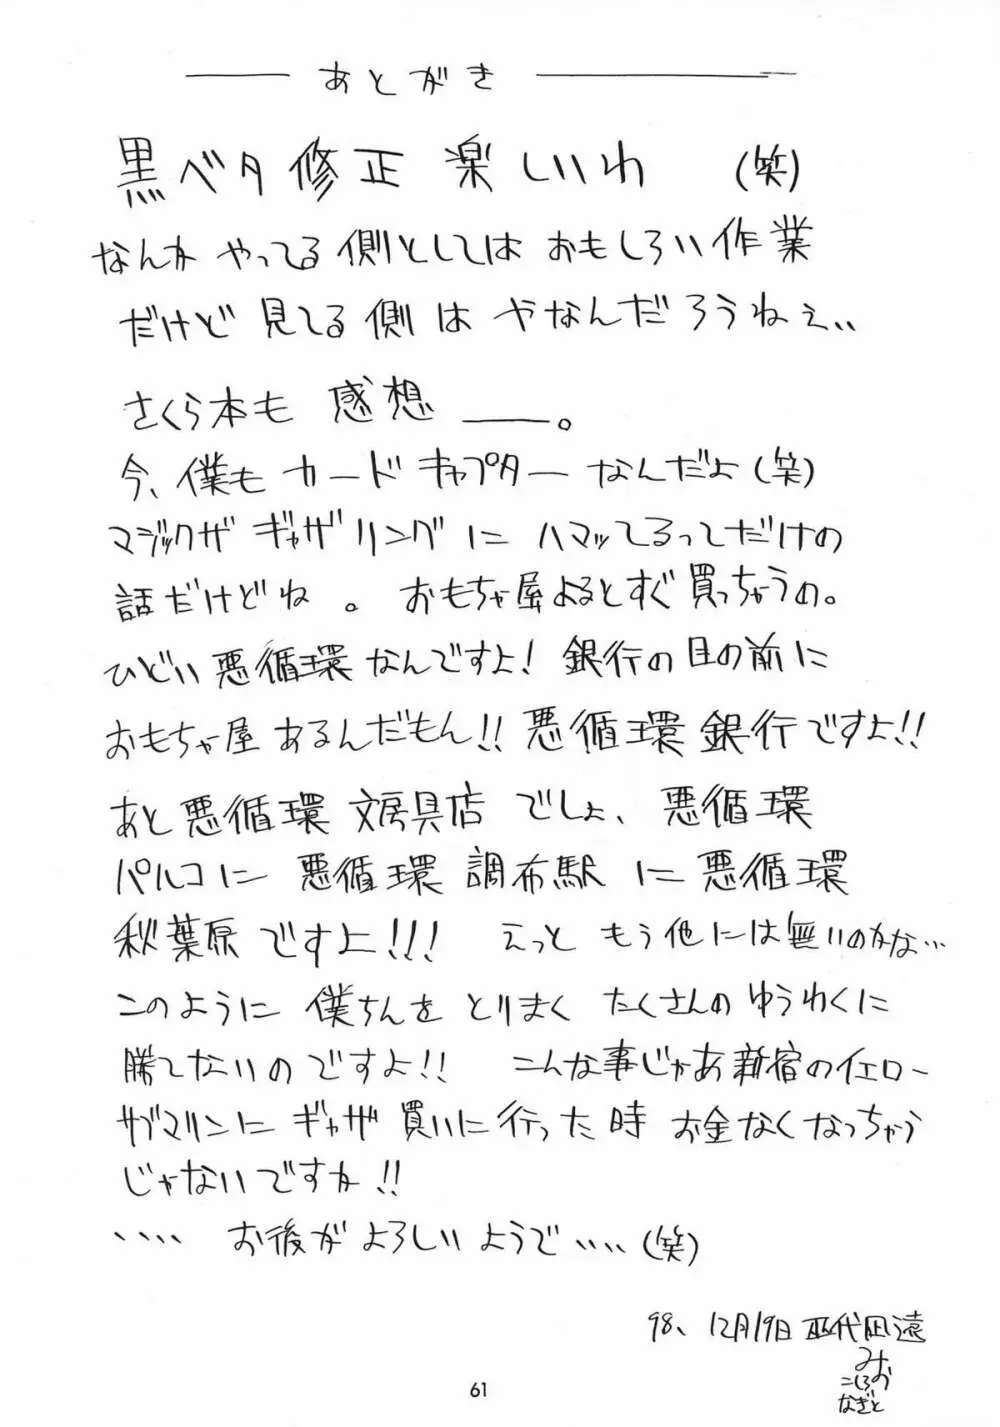 あとがき
黒ベタ修正 楽しいわ (笑)
なんか やってる側としては おもしろい作業
だけど 見てる側は やなんだろうねぇ、、
さくら本も 感想 ――。
今、僕も カードキャプターなんだよ(笑)
マジックザ ギャザリングに ハマッてるってだけの
話だけどね。 おもちゃ屋よるとすぐ買っちゃうの。
ひどい悪循環なんですよ! 銀行の目の前に
おもちゃ屋あるんだもん!! 悪循環銀行ですよ!!
あと悪循環 文房具店 でしょ、悪循環
パルコに 悪循環 調布駅 に 悪循環
秋葉原 ですよ!!! えっと もう他には無いのかな…
このように 僕ちんを とりまく たくさんの ゆうわくに
勝てないのですよ!! こんな事じゃあ新宿のイエロー
サブマリンに ギャザ 買いに行った時 お金なくなっちゃう
じゃないですか!!
、、、、 お後がよろしいようで、、、、(笑)
98、12月19日 巫代凪遠
みお
こしろ
なぎと
61